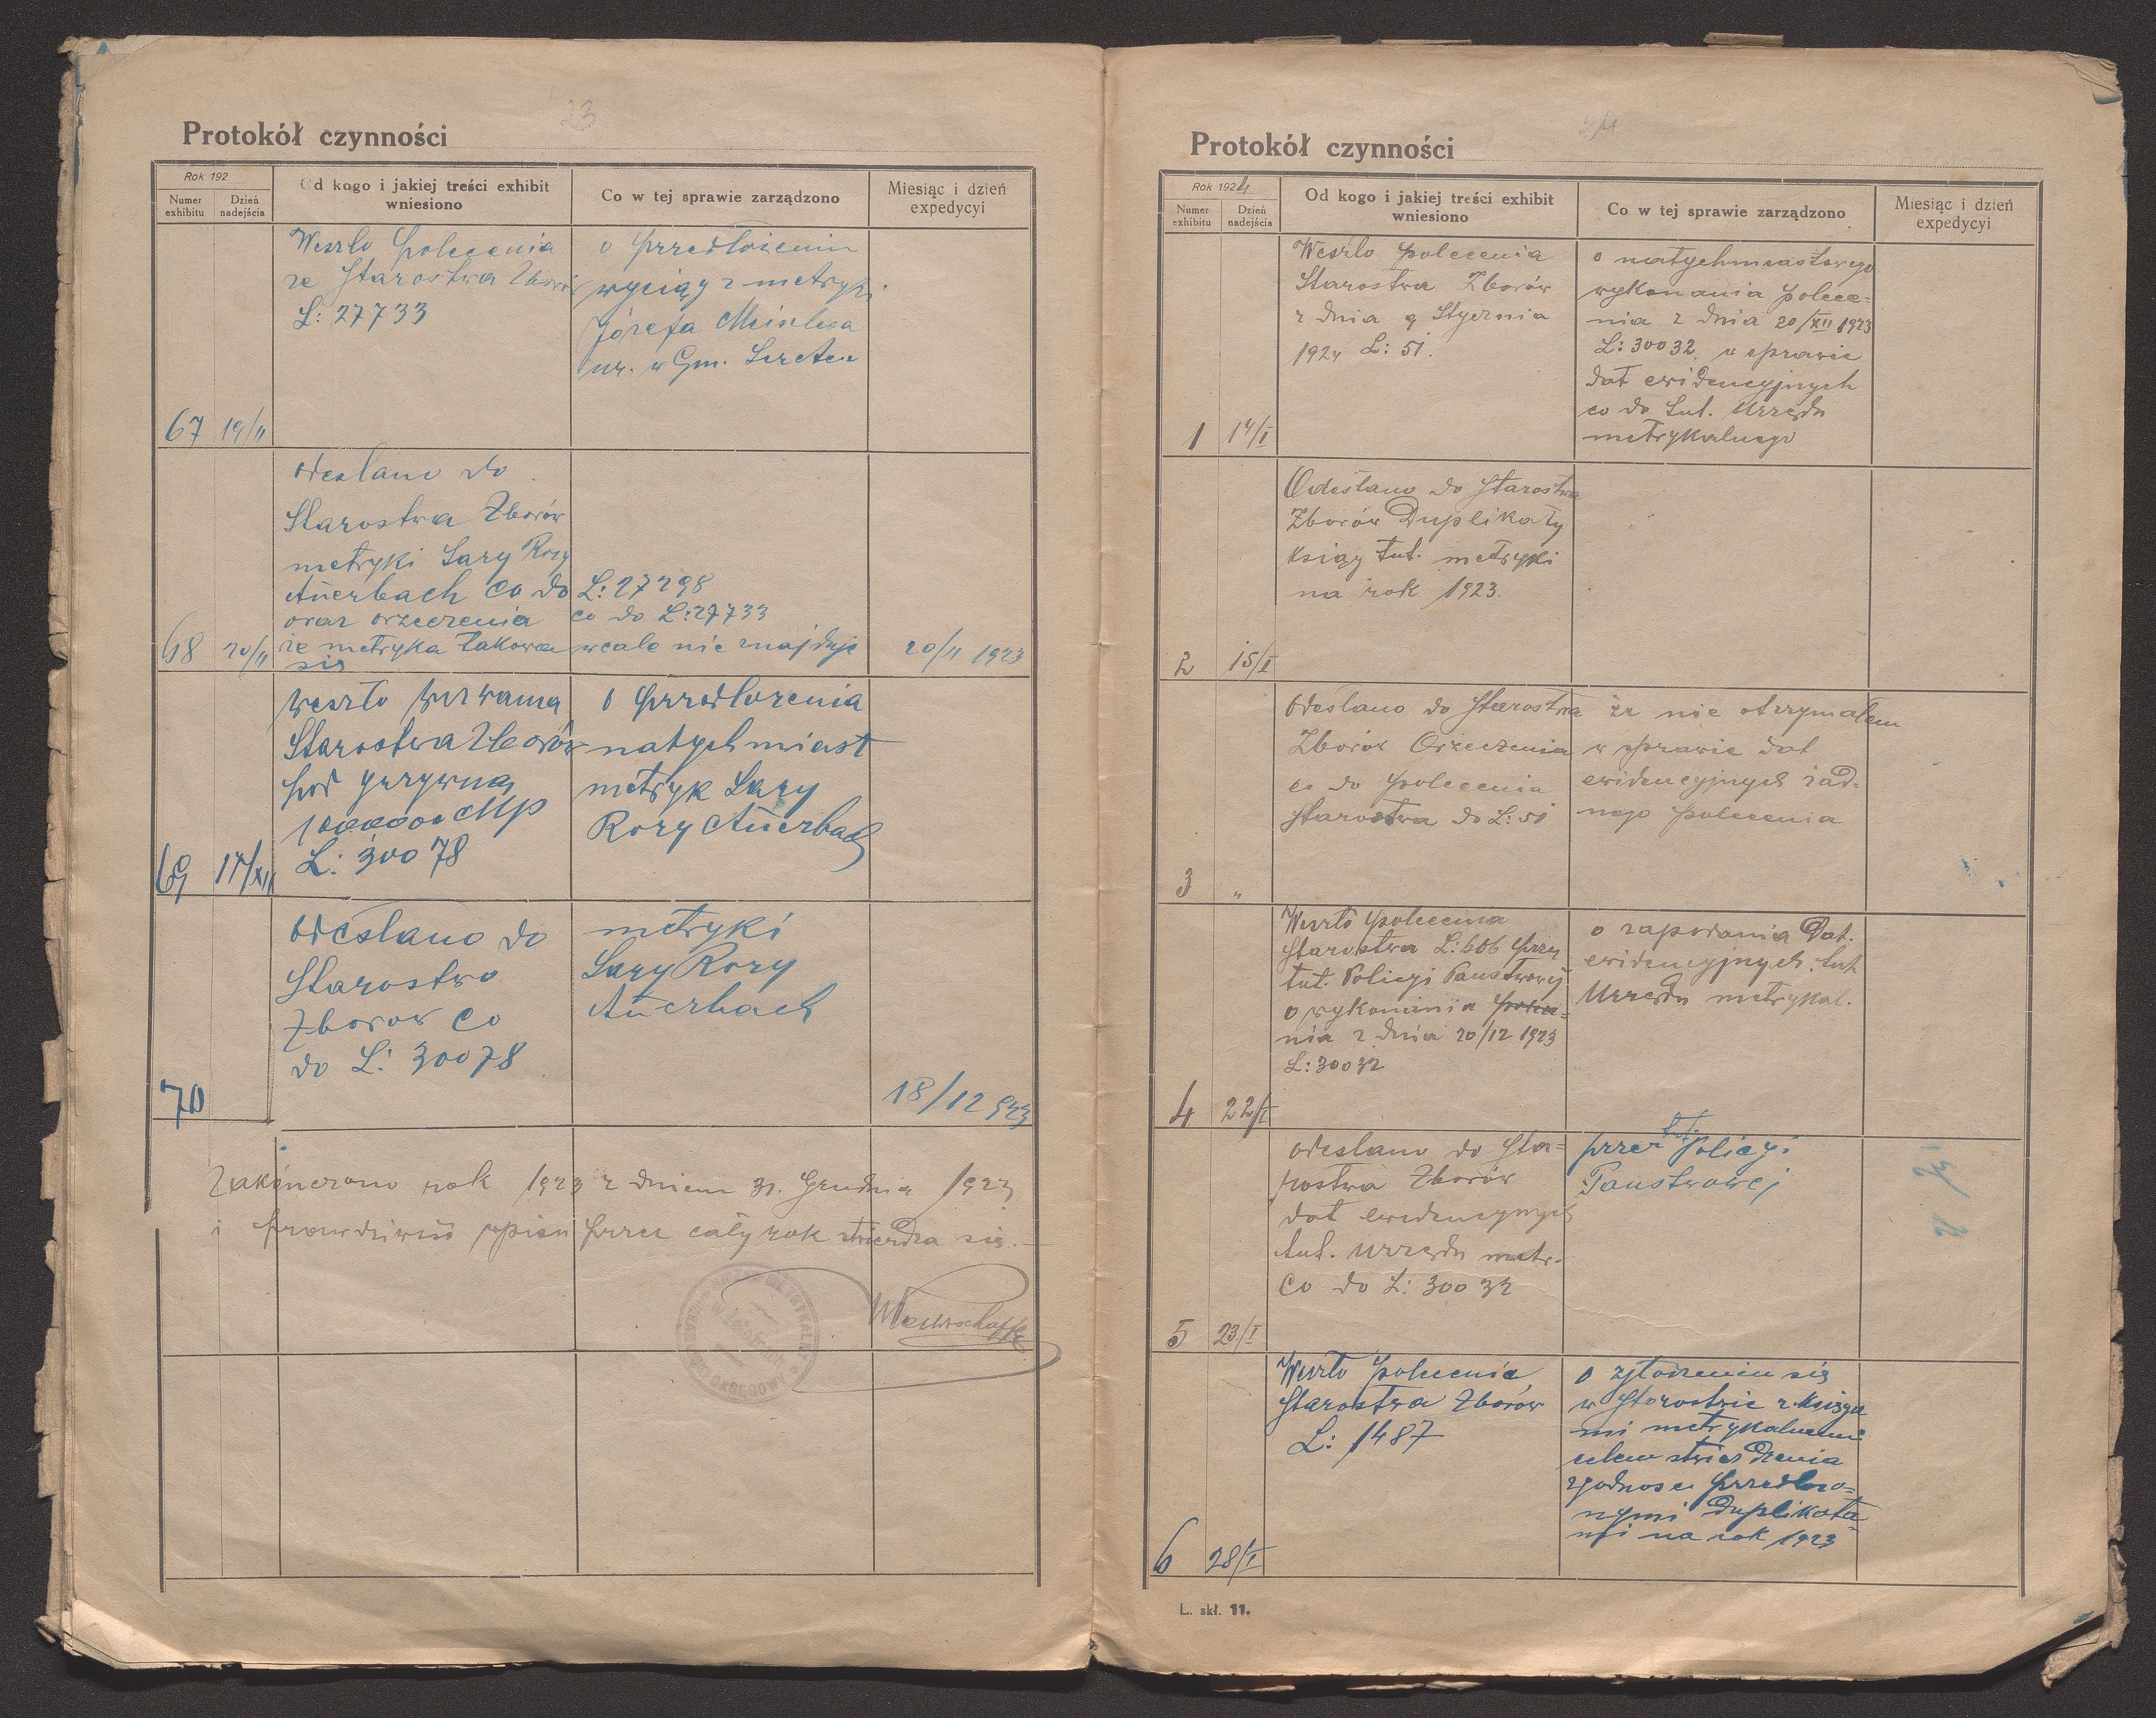 23
Protokół czynności
Rok 192
Numer exhibitu
Dzień nadejścia
Od kogo i jakiej treści exhibit wniesiono
Co w tej sprawie zarządzono
Miesiąc i dzień expedycyi
Weszło polecenia
ze Starostwa Zborów
L: 27733
o przedłożeniu
wyciąg z metryki
Józefa
ur. w Gm.
67 19/11
Odesłano do
Starostwa Zborów
metryki Sary Rozy
Auerbach co do L: 27298
oraz orzeczenia co do L: 27733
że metryka takowa wcale nie znajduje
się
68 20/11
20/11 1923
Weszło wezwania
Starostwa Zborów
pod grzywną
Mp
L: 30078
o przedłożenia
natychmiast
metryk Sary
Rozy Auerbach
69 17/XII
Odesłano do
Starostwo
Zborow co
do L: 30078
metryki
Sary Rozy
Auerbach
70
18/12 923
Zakończono rok 1923 z dniem 31. Grudnia 1923
i prawdziwość wpisu przez cały rok stwierdza się.
24
Protokół czynności
Rok 1924
Numer exhibitu
Dzień nadejścia
Od kogo i jakiej treści exhibit wniesiono
Co w tej sprawie zarządzono
Miesiąc i dzień expedycyi
Weszło polecenia
Starostwa Zborów
z dnia 9 Stycznia
1924 L: 51.
o natychmiastowego
wykonania polece-
nia z dnia 20/XII 1923
L: 30032 w sprawie
dat ewidencyjnych
co do tut. Urzędu
metrykalnego
1 14/I
Odesłano do Starostwa
Zborów Duplikaty
Ksiąg tut. metryki
na rok 1923.
2 15/I
Odesłano do Starostwa
Zborów Orzeczenia
co do polecenia
Starostwa do L: 51
że nie otrzymałem
w sprawie dat
ewidencyjnych żad-
nego polecenia
3 "
Weszło polecenia
Starostwa L: 606 przez
tut. Policyi Państwowej
o wykonania polece-
nia z dnia 20/12 1923
L: 30032
o zapodania Dat.
ewidencyjnych tut
Urzędu metrykal.
4 22/I
Odesłano do Sta=
rostwa Zborów
dat ewidencyjnych
tut. Urzędu metr.
Co do L: 30032
przez tut. Policyi
Panstwowej
5 23/I
Weszło polecenia
Starostwa Zborów
L: 1487
o zgłoszeniu się
w Starostwie z księga
mi metrykalnemi
celem stwierdzenia
zgodnosci przedłożo=
nymi Duplikata=
mi na rok 1923
6 28/I
L. skł. 11.